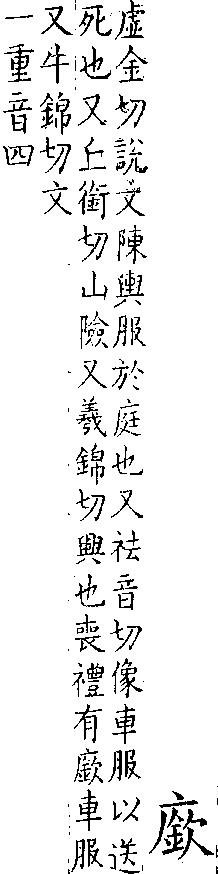 廞
虛金切說文陳輿服於庭也又祛音切像車服以送
死也又丘銜切山險又羲錦切興也喪禮有廞車服
又牛錦切文
一重音四